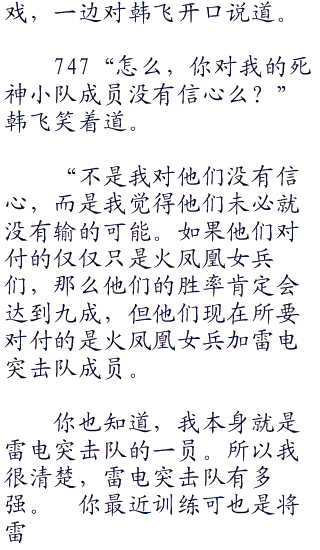 戏，一边对韩飞开口说道。
747“怎么，你对我的死
神小队成员没有信心么？”
韩飞笑着道。
“不是我对他们没有信
心，而是我觉得他们未必就
没有输的可能。如果他们对
付的仅仅只是火凤凰女兵
们，那么他们的胜率肯定会
达到九成，但他们现在所要
对付的是火凤凰女兵加雷电
突击队成员。
你也知道，我本身就是
雷电突击队的一员。所以我
很清楚，雷电突击队有多
强。　你最近训练可也是将
雷